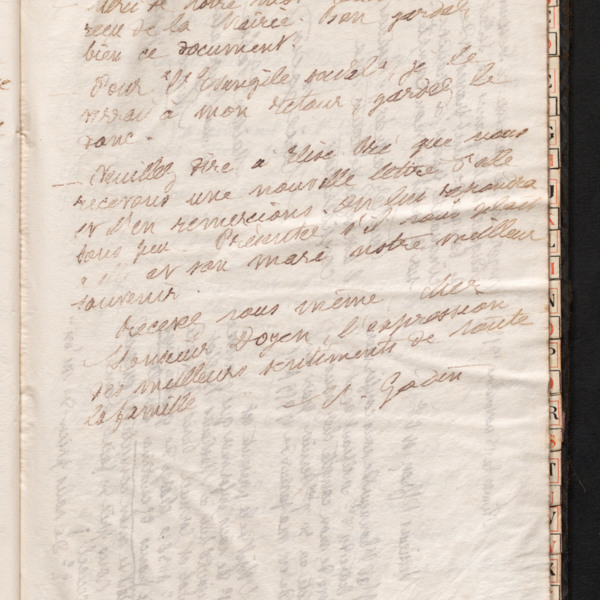 reçu de la Mairie. Bon gardez
bien ce document.
Pour l'Evangile social, je le
verrai à mon retour gardez le
donc.
— Veuillez dire à Elise que nous
recevons une nouvelle lettre d'elle
et l'en remercions. On lui répondra
sous peu. Présentez s'il vous plait
et son mari notre meilleur
souvenir.
Recevez vous même cher
Monsieur Doyen, l'expression
des meilleurs sentiments de toute
la famille
Godin
E
G
J
K
L
N
O
P
R
S
T
V
X